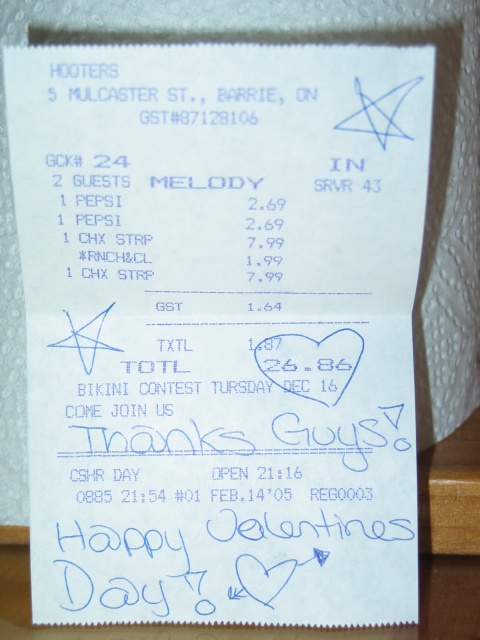 HOOTERS
5 MULCASTER ST., BARRIE, ON
GST#87128106
GCK# 24 IN
2 GUESTS MELODY SRVR 43
1 PEPSI 2.69
1 PEPSI 2.69
1 CHX STRP 7.99
*RNCH&CL 1.99
1 CHX STRP 7.99
GST 1.64
TXTL 1.87
TOTL 26.86
BIKINI CONTEST TURSDAY DEC 16
COME JOIN US
Thanks Guys!
CSHR DAY OPEN 21:16
0885 21:54 #01 FEB.14'05 REG0003
Happy Valentines
Day!